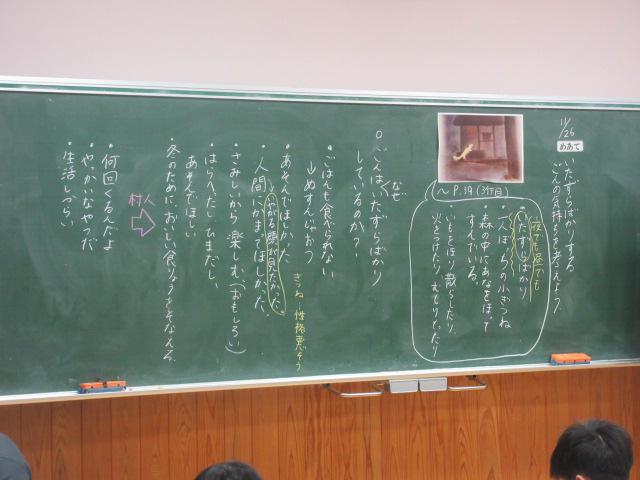 11/26
めあて
いたずらばかりする
ごんの気持ちを考えよう。
〜P.19(3行目)
夜でも昼でも
いたずらばかり
一人ぼっちの小ぎつね
森の中にあなをほって
すんでいる。
いもをほり散らしたり、
火をつけたり、むしりとったり
なぜ
○ごんはいたずらばかり
しているのか?
・ごはんも食べられない
→ぬすんじゃおう
・あそんでほしかった
→がる顔が見たかった。
きつね…性格悪そう
・人間にかまってほしかった。
・さみしいから楽しむ(おもしろい)
・はらへった、ひまだし、
あそんでほしい
・冬のために、おいしい食りょうをそなえる
村人
・何回くるんだよ
・やっかいなやつだ
・生活しづらい